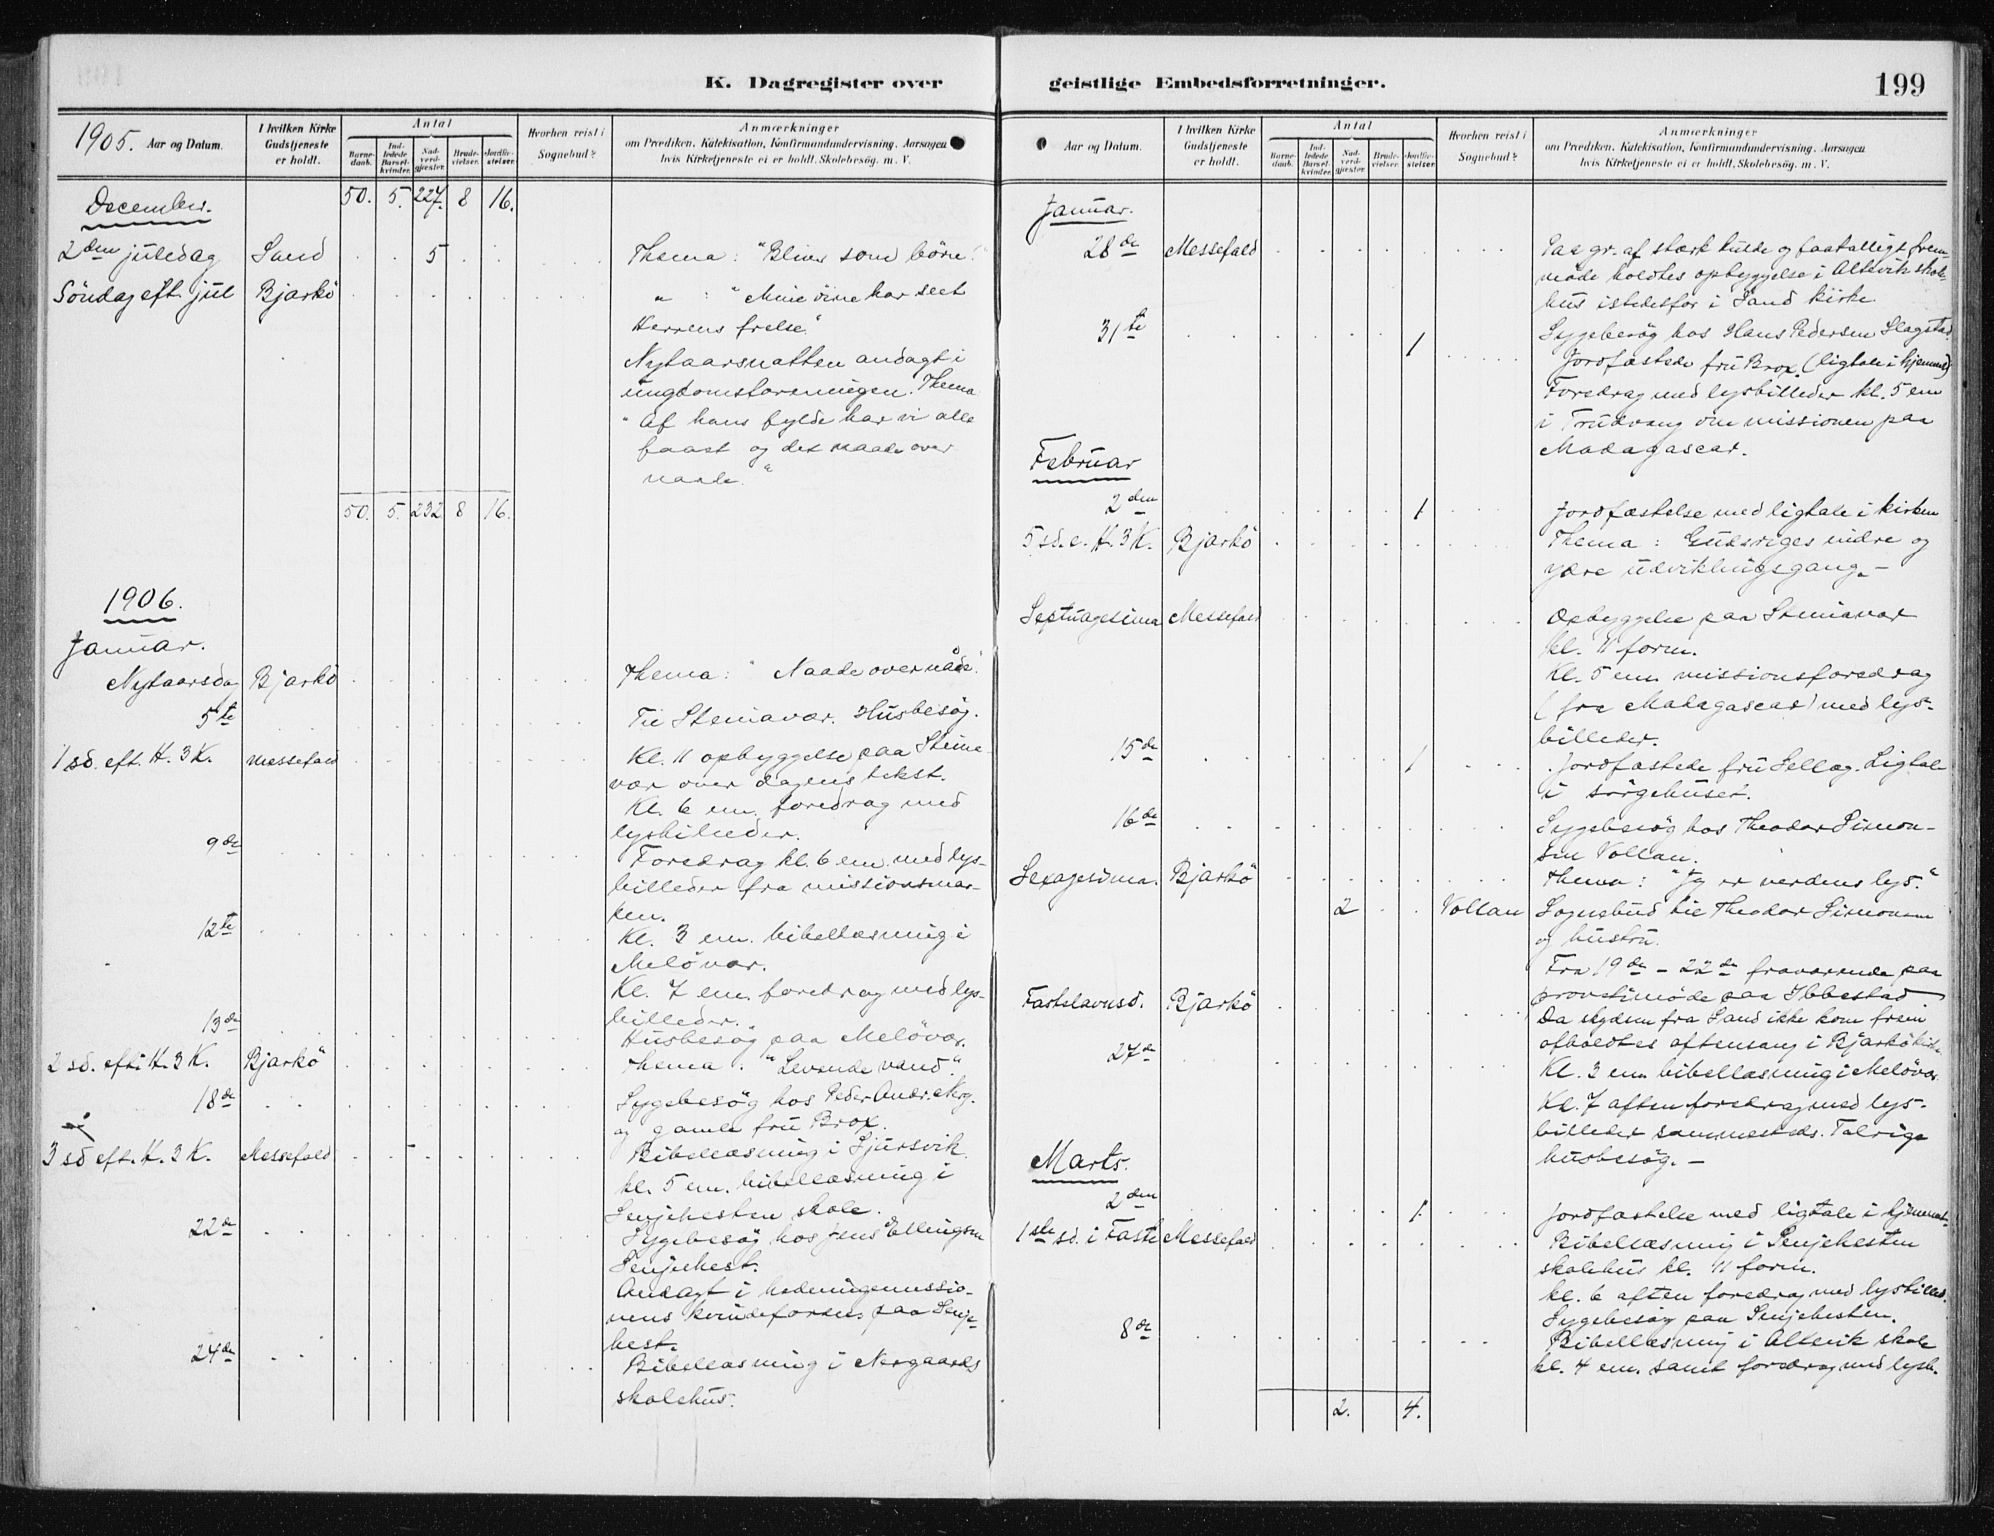 K. Dagregister over
geistlige Embedsforretninger.
199
1905. Aar og Datum.
I hvilken Kirke Gudstjeneste er holdt.
Antal
Barnedaab.
Indledede Barselkvinder.
Nadverdgjester.
Brudevielser.
Jordfæstelser.
Hvorhen reist i Sognebud?
Anmærkninger
om Prædiken, Katekisation, Konfirmandundervisning. Aarsagen
hvis Kirketjeneste ei er holdt. Skolebesög. m. V.
December. 50. 5. 227. 8 16.
2den juledag Sand 5 Thema: "Bliver som börn."
Söndag eft. jul Bjarkö " : "Mine öine har seet
Herrens frelse."
Nytaarsnatten andagt i
ungdomsforeningen. Thema
"Af hans fylde har vi alle
faaet og det naade over
naade."
50. 5. 232 8 16.
1906.
Januar.
Nytaarsdag Bjarkö Thema: "Naade over nåde".
5te Til Steinavær. Husbesög.
1 sd. eft. H. 3 K. Messefald Kl. 11 opbyggelse paa Steina-
vær over dagens tekst.
Kl. 6 em. foredrag med
lysbilleder.
9de Foredrag kl. 6 em. med lys-
billeder fra missionsmar-
ken.
12te Kl. 3 em. bibellæsning i
Melövær.
Kl. 7 em. foredrag med lys-
billeder.
13de Husbesög paa Melövær.
2 sd. eft. H. 3 K. Bjarkö Thema: "Levende vand".
18de Sygebesög hos Peder Andr.
og gamle fru Brox.
3 sd eft. H. 3 K. Messefald Bibellæsning i Sjursvik
kl. 5 em. bibellæsning i
Senjehesten skole.
22de Sygebesög hos Jens Ellingsen
Senjehest.
Andagt i hedningemissio-
nens kvindeforen. paa Senje-
hest.
24de Bibellæsning i Nergaards
skolehus.
Aar og Datum.
I hvilken Kirke Gudstjeneste er holdt.
Antal
Barnedaab.
Indledede Barselkvinder.
Nadverdgjester.
Brudevielser.
Jordfæstelser.
Hvorhen reist i Sognebud?
Anmærkninger
om Prædiken. Katekisation, Konfirmandundervisning. Aarsagen
hvis Kirketjeneste ei er holdt. Skolebesög. m. V.
Januar.
28de Messefald Paa gr. af stærk kulde og faatalligt frem-
möde holdtes opbyggelse i Altevik skole-
hus istedesfor i Sand kirke.
31te Sygebesög hos Hans Pedersen Slagstad.
1 Jordfæstede fru Brox. (ligtale i hjemmet)
Foredrag med lysbilleder kl. 5 em
i Trudvang om missionen paa
Madagascar.
Februar
2den 1 Jordfæstelse med ligtale i kirken
5 sd. e. H. 3 K. Bjarkö Thema: Gudsriges indre og
ydre udviklingsgang. -
Septuagesima Messefald Opbyggelse paa Steinavær
kl. 11 form.
Kl. 5 em missionsforedrag
(fra Madagascar) med lys-
billeder.
15de 1 Jordfæstede fru Selläg. Ligtale
i sörgehuset.
16de Sygebesög hos Theodor Simon-
sen Vollan.
Sexagesima. Bjarkö Thema: "Jeg er verdens lys."
2 Vollan Sognebud til Theodor Simonsen
og hustru.
Fra 19de - 22de fraværende paa
provstimöde paa Ibbestad
Fastelavnsd. Bjarkö Da skydsen fra Sand ikke kom frem
afholdtes aftensang i Bjarkö kirke
27de Kl. 3 em bibellæsning i Melövær
Kl. 7 aften foredrag med lys-
billeder sammesteds. Talrige
husbesög. -
Marts.
2den 1. Jordfæstelse med ligtale i hjemmet.
1ste sd. i Faste Messefald Bibellæsning i Senjehesten
skolehus kl. 11 form.
kl. 6 aften foredrag med lysbilled.
Sygebesög paa Senjehesten.
8de Bibellæsning i Altevik skole
kl. 4 em. samt foredrag med lysb.
2. 4.